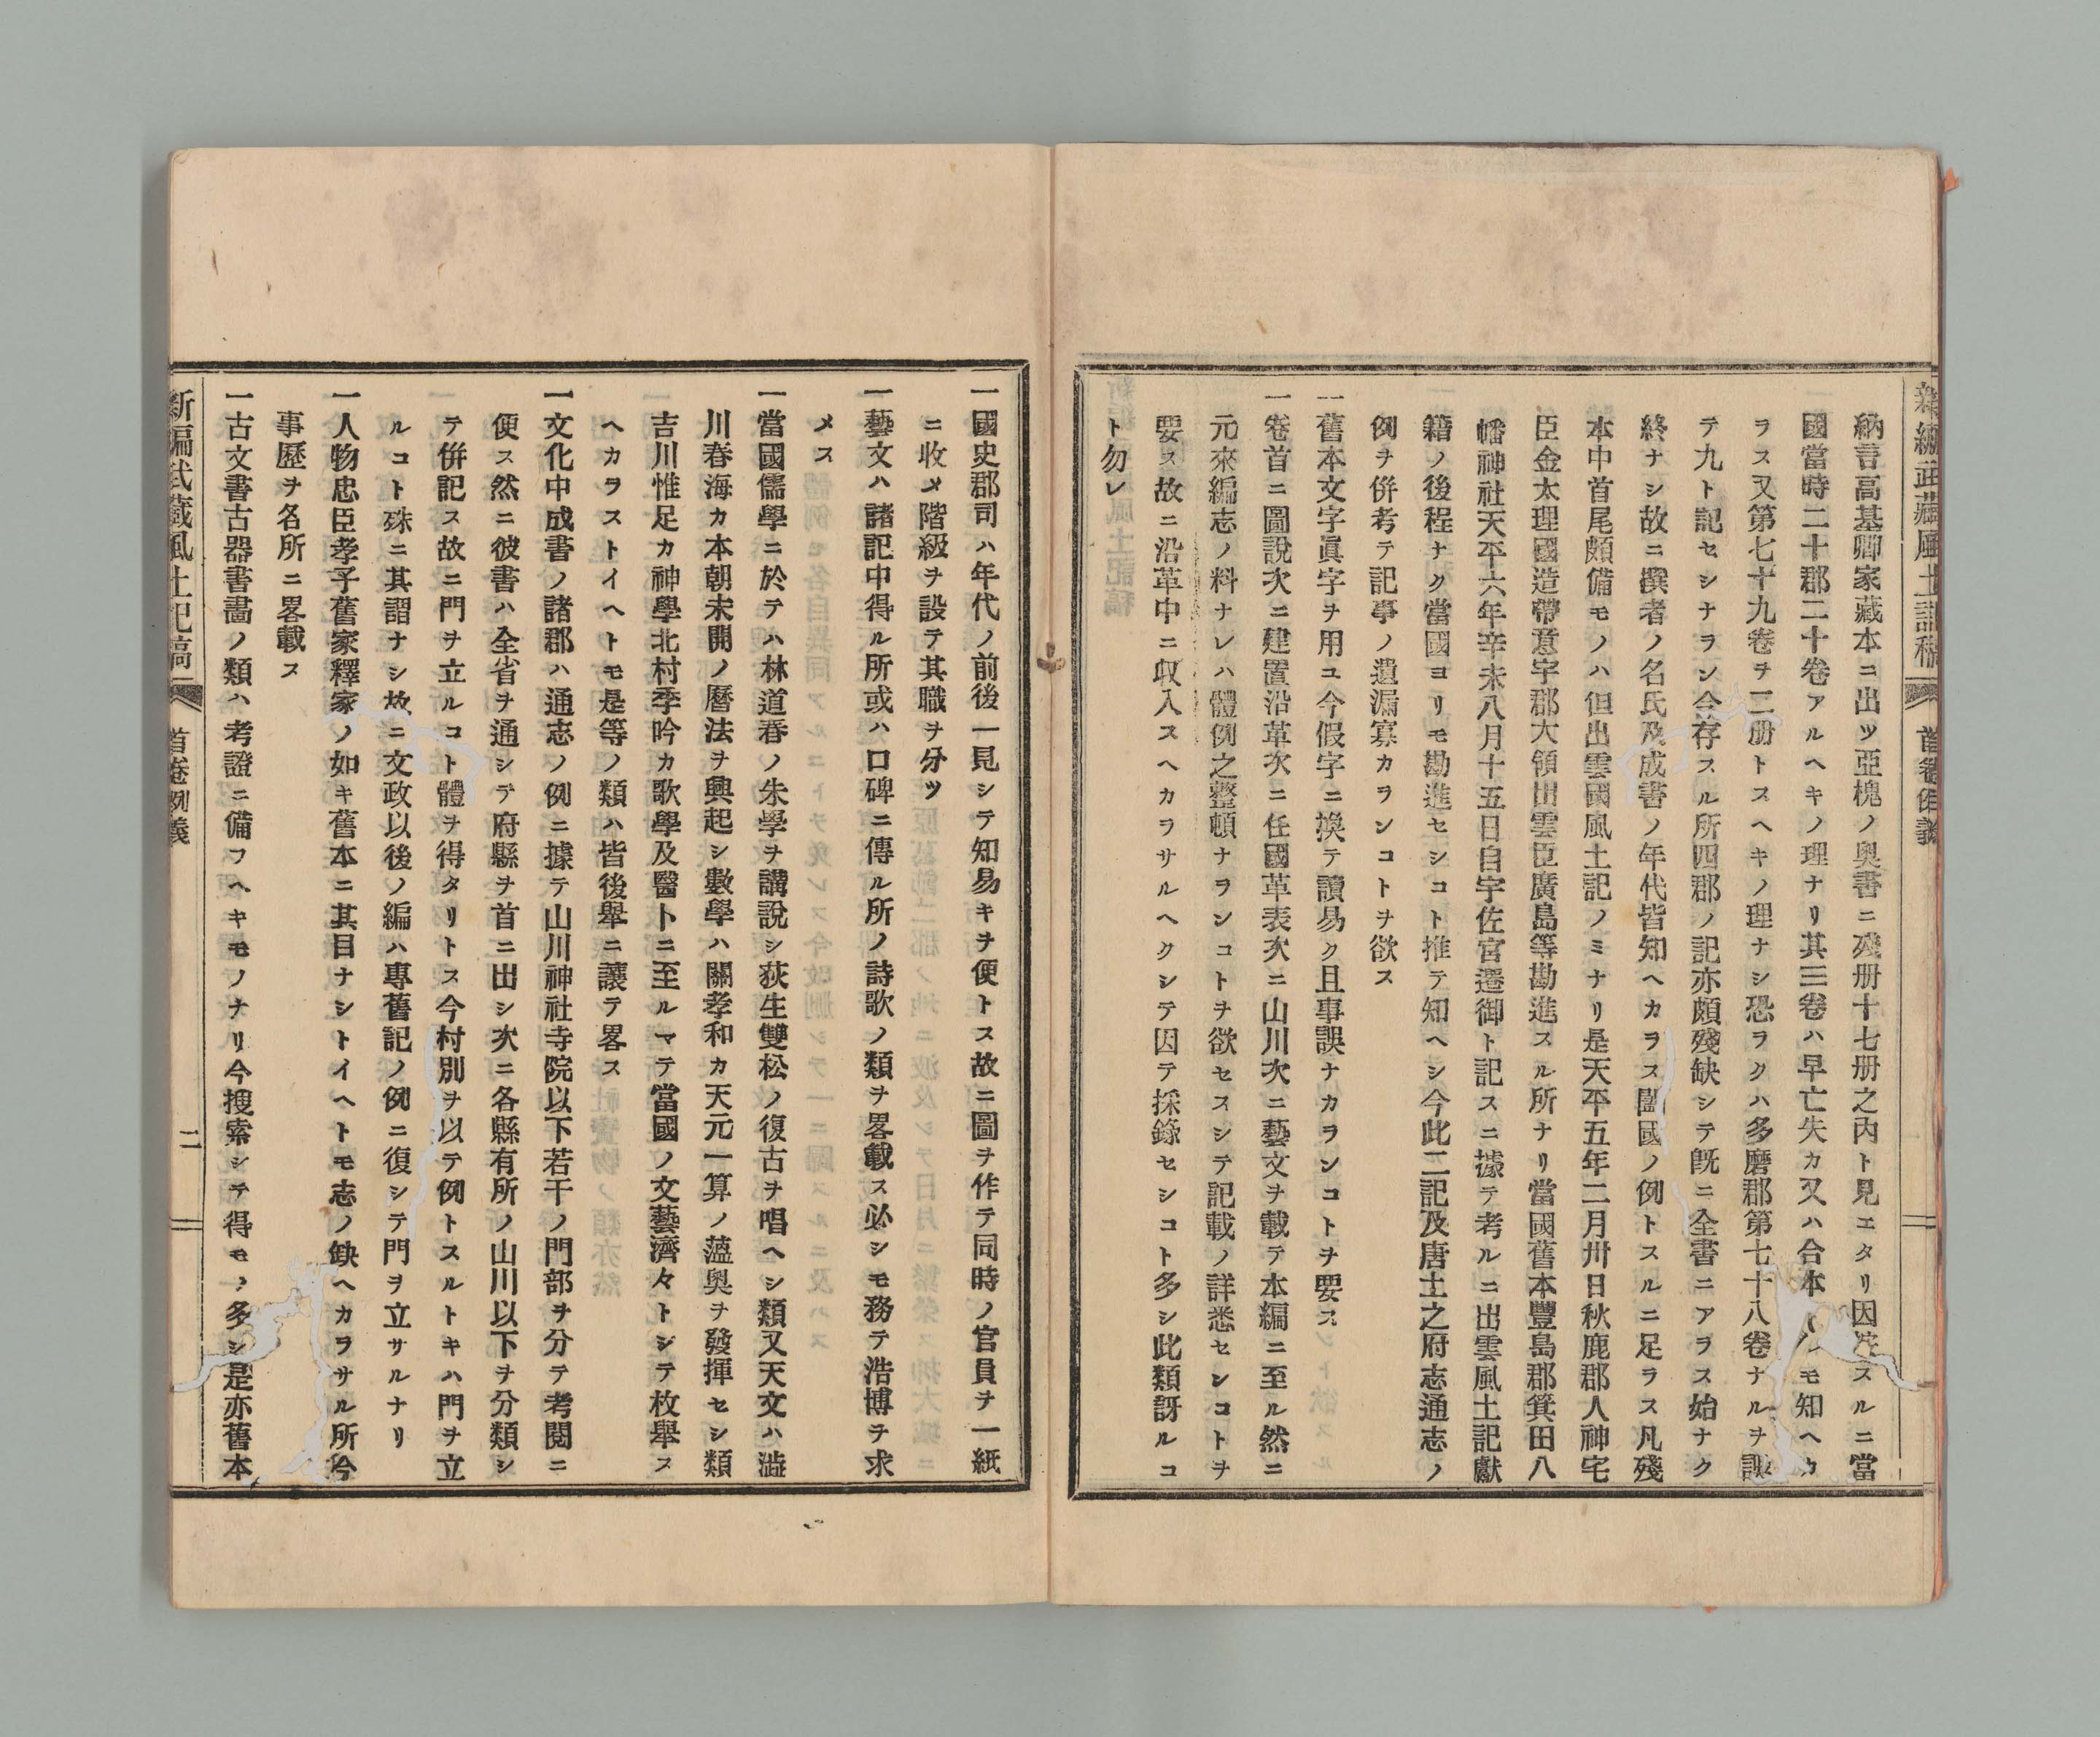 新編武藏風土記稿 首卷例義
納言高基卿家藏本ニ出ツ亞槐ノ奥書ニ殘册十七册之内ト見エタリ因テスルニ當
國當時二十郡二十卷アルヘキノ理ナリ其三卷ハ早亡失カ又ハ合本ノモ知ヘカ
ラス又第七十九卷ヲ二册トスヘキノ理ナシ恐ラクハ多磨郡第七十八卷ナルヲ誤
テ九ト記セシナラン今存スル所四郡ノ記亦頗殘缺シテ既ニ全書ニアラス始ナク
終ナシ故ニ撰者ノ名氏及成書ノ年代皆知ヘカラス闔國ノ例トスルニ足ラス凡殘
本中首尾頗備モノハ但出雲國風土記ノミナリ是天平五年二月卅日秋鹿郡人神宅
臣金太理國造帶意宇郡大領出雲臣廣島等勘進スル所ナリ當國舊本豐島郡箕田八
幡神社天平六年辛未八月十五日自宇佐宮遷御ト記スニ據テ考ルニ出雲風土記獻
籍ノ後程ナク當國ヨリモ勘進セシコト推テ知ヘシ今此二記及唐土之府志通志ノ
例ヲ併考テ記事ノ遺漏寡カランコトヲ欲ス
一舊本文字眞字ヲ用ユ今假字ニ換テ讀易ク且事誤ナカランコトヲ要ス
一卷首ニ圖説次ニ建置沿革次ニ任國革表次ニ山川次ニ藝文ヲ載テ本編ニ至ル然ニ
元來編志ノ料ナレハ體例之整頓ナランコトヲ欲セスシテ記載ノ詳悉センコトヲ
要ス故ニ沿革中ニ収入スヘカラサルヘクシテ因テ採錄セシコト多シ此類訝ルコ
ト勿レ
一國史郡司ハ年代ノ前後一見シテ知易キヲ便トス故ニ圖ヲ作テ同時ノ官員ヲ一紙
ニ收メ階級ヲ設テ其職ヲ分ツ
一藝文ハ諸記中得ル所或ハ口碑ニ傳ル所ノ詩歌ノ類ヲ畧載ス必シモ務テ浩博ヲ求
メス
一當國儒學ニ於テハ林道春ノ朱學ヲ講説シ荻生雙松ノ復古ヲ唱ヘシ類又天文ハ澁
川春海カ本朝未開ノ曆法ヲ興起シ數學ハ關孝和カ天元一算ノ薀奥ヲ發揮セシ類
吉川惟足カ神學北村季吟カ歌學及醫卜ニ至ルマテ當國ノ文藝濟々トシテ枚舉ス
ヘカラストイヘトモ是等ノ類ハ皆後舉ニ讓テ畧ス
一文化中成書ノ諸郡ハ通志ノ例ニ據テ山川神社寺院以下若干ノ門部ヲ分テ考閲ニ
便ス然ニ彼書ハ全省ヲ通シテ府縣ヲ首ニ出シ次ニ各縣有所ノ山川以下ヲ分類シ
テ併記ス故ニ門ヲ立ルコト體ヲ得タリトス今村別ヲ以テ例トスルトキハ門ヲ立
ルコト殊ニ其謂ナシ故ニ文政以後ノ編ハ專舊記ノ例ニ復シテ門ヲ立サルナリ
一人物忠臣孝子舊家釋家ノ如キ舊本ニ其目ナシトイヘトモ志ノ缺ヘカラサル所今
事歷ヲ名所ニ畧載ス
一古文書古器書畵ノ類ハ考證ニ備フヘキモノナリ今搜索シテ得モノ多シ是亦舊本
新編武藏風土記稿 首卷例義 二